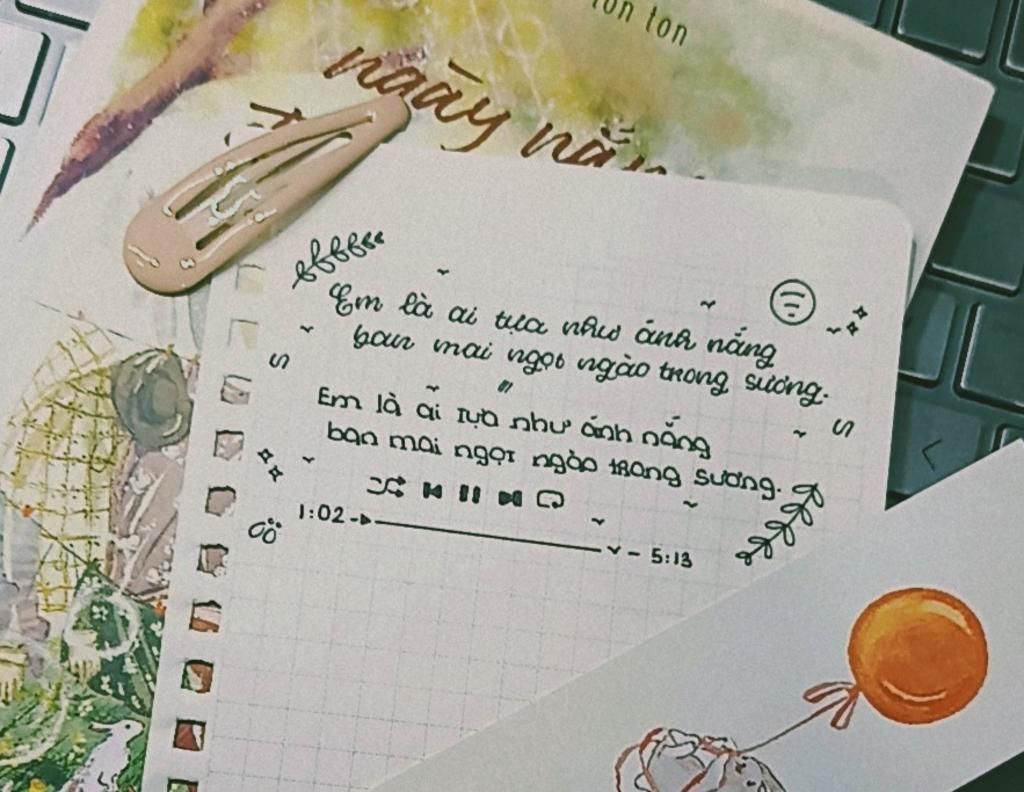 ton ton
ngày nắn
Em là ai tựa như ánh nắng
ban mai ngọt ngào trong sương.
Em là ai tựa như ánh nắng
ban mai ngọt ngào trong sương.
1:02 5:13